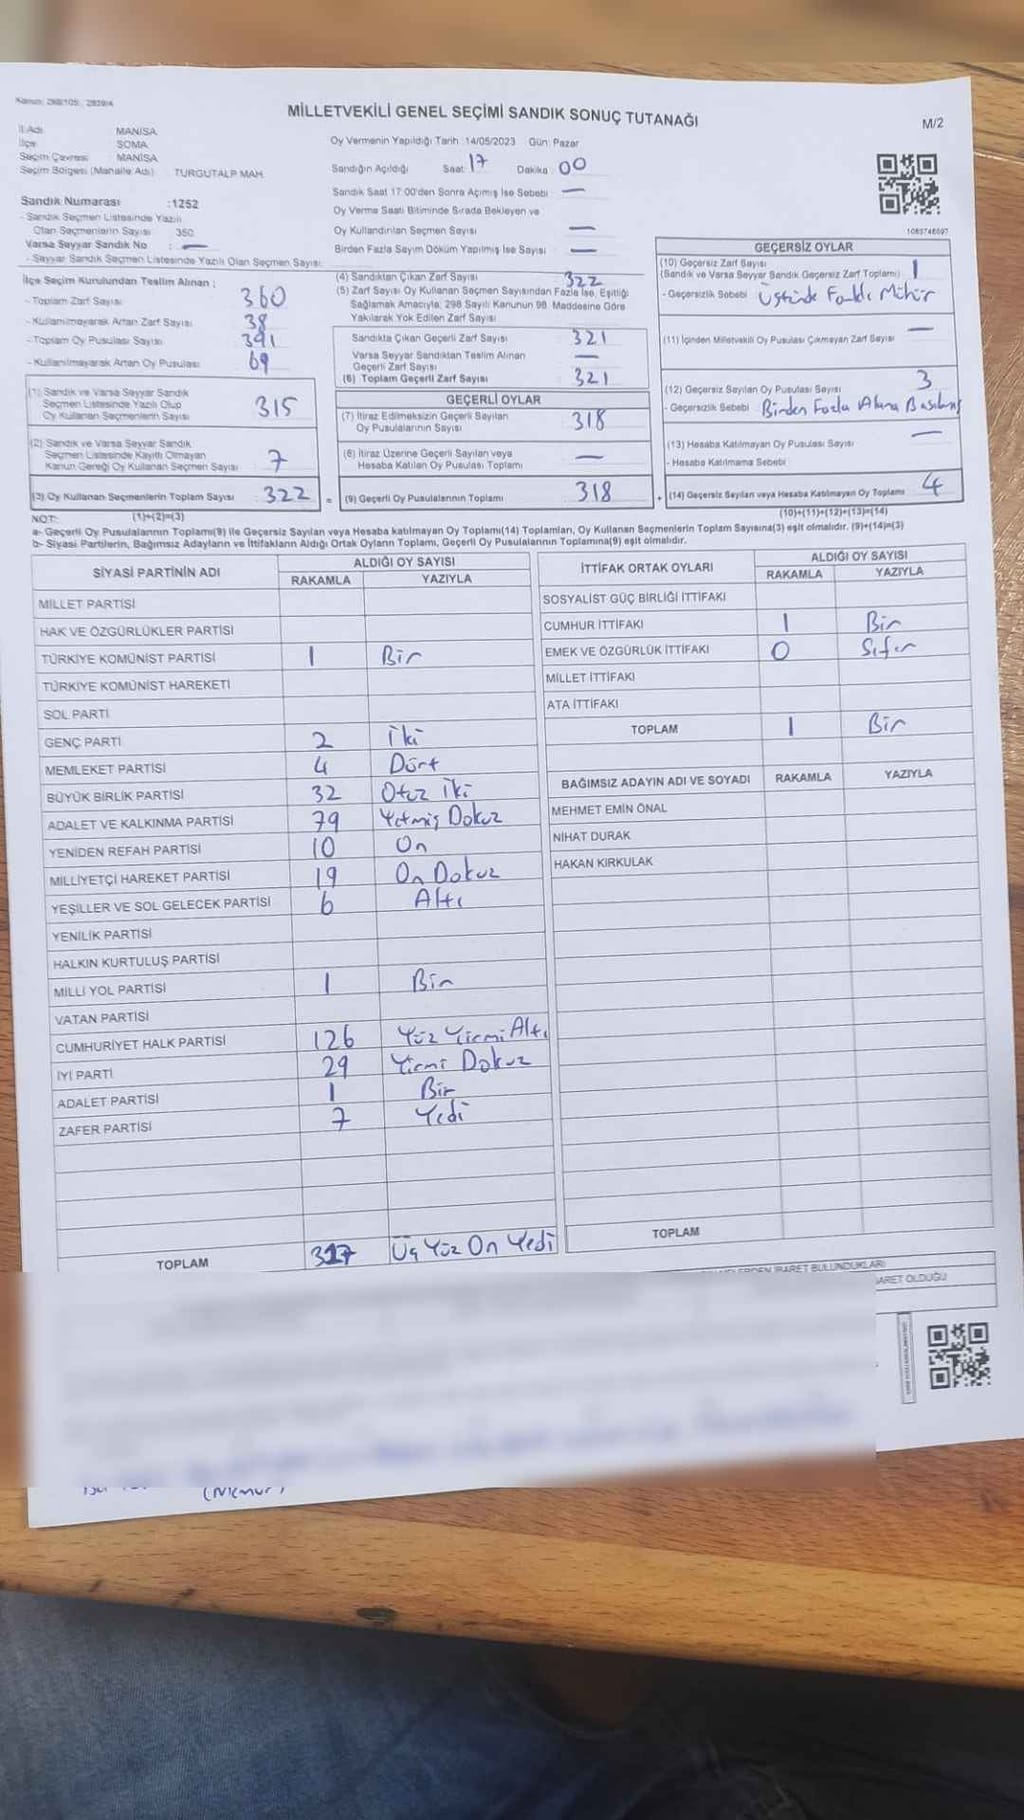 Kanun: 298/105, 2839/4
MİLLETVEKİLİ GENEL SEÇİMİ SANDIK SONUÇ TUTANAĞI
M/2
İl Adı MANİSA
İlçe SOMA
Seçim Çevresi MANİSA
Seçim Bölgesi (Mahalle Adı) TURGUTALP MAH.
Sandık Numarası :1252
- Sandık Seçmen Listesinde Yazılı
Olan Seçmenlerin Sayısı 350
Varsa Seyyar Sandık No : —
- Seyyar Sandık Seçmen Listesinde Yazılı Olan Seçmen Sayısı:
Oy Vermenin Yapıldığı Tarih :14/05/2023 Gün: Pazar
Sandığın Açıldığı Saat: 17 Dakika: 00
Sandık Saat 17:00'den Sonra Açımış İse Sebebi —
Oy Verme Saati Bitiminde Sırada Bekleyen ve
Oy Kullandırılan Seçmen Sayısı —
Birden Fazla Sayım Döküm Yapılmış İse Sayısı —
1083746097
İlçe Seçim Kurulundan Teslim Alınan ;
- Toplam Zarf Sayısı 360
- Kullanılmayarak Artan Zarf Sayısı 38
- Toplam Oy Pusulası Sayısı 391
- Kullanılmayarak Artan Oy Pusulası 69
(1) Sandık ve Varsa Seyyar Sandık
Seçmen Listesinde Yazılı Olup
Oy Kullanan Seçmenlerin Sayısı 315
(2) Sandık ve Varsa Seyyar Sandık
Seçmen Listesinde Kayıtlı Olmayan
Kanun Gereği Oy Kullanan Seçmen Sayısı 7
(3) Oy Kullanan Seçmenlerin Toplam Sayısı 322 =
(4) Sandıktan Çıkan Zarf Sayısı 322
(5) Zarf Sayısı Oy Kullanan Seçmen Sayısından Fazla İse, Eşitliği
Sağlamak Amacıyla, 298 Sayılı Kanunun 98. Maddesine Göre
Yakılarak Yok Edilen Zarf Sayısı
Sandıkta Çıkan Geçerli Zarf Sayısı 321
Varsa Seyyar Sandıktan Teslim Alınan
Geçerli Zarf Sayısı —
(6) Toplam Geçerli Zarf Sayısı 321
GEÇERLİ OYLAR
(7) İtiraz Edilmeksizin Geçerli Sayılan
Oy Pusulalarının Sayısı 318
(8) İtiraz Üzerine Geçerli Sayılan veya
Hesaba Katılan Oy Pusulası Toplamı —
(9) Geçerli Oy Pusulalarının Toplamı 318 +
GEÇERSİZ OYLAR
(10) Geçersiz Zarf Sayısı
(Sandık ve Varsa Seyyar Sandık Geçersiz Zarf Toplamı) 1
- Geçersizlik Sebebi Üstünde Farklı Mühür
(11) İçinden Milletvekili Oy Pusulası Çıkmayan Zarf Sayısı —
(12) Geçersiz Sayılan Oy Pusulası Sayısı 3
- Geçersizlik Sebebi Birden Fazla Alana Basılmış
(13) Hesaba Katılmayan Oy Pusulası Sayısı —
- Hesaba Katılmama Sebebi
(14) Geçersiz Sayılan veya Hesaba Katılmayan Oy Toplamı 4
NOT: (1)+(2)=(3) (10)+(11)+(12)+(13)=(14)
a- Geçerli Oy Pusulalarının Toplamı(9) ile Geçersiz Sayılan veya Hesaba katılmayan Oy Toplamı(14) Toplamları, Oy Kullanan Seçmenlerin Toplam Sayısına(3) eşit olmalıdır. (9)+(14)=(3)
b- Siyasi Partilerin, Bağımsız Adayların ve İttifakların Aldığı Ortak Oyların Toplamı, Geçerli Oy Pusulalarının Toplamına(9) eşit olmalıdır.
SİYASİ PARTİNİN ADI ALDIĞI OY SAYISI
RAKAMLA YAZIYLA
MİLLET PARTİSİ
HAK VE ÖZGÜRLÜKLER PARTİSİ
TÜRKİYE KOMÜNİST PARTİSİ 1 Bir
TÜRKİYE KOMÜNİST HAREKETİ
SOL PARTİ
GENÇ PARTİ 2 İki
MEMLEKET PARTİSİ 4 Dört
BÜYÜK BİRLİK PARTİSİ 32 Otuz İki
ADALET VE KALKINMA PARTİSİ 79 Yetmiş Dokuz
YENİDEN REFAH PARTİSİ 10 On
MİLLİYETÇİ HAREKET PARTİSİ 19 On Dokuz
YEŞİLLER VE SOL GELECEK PARTİSİ 6 Altı
YENİLİK PARTİSİ
HALKIN KURTULUŞ PARTİSİ
MİLLİ YOL PARTİSİ 1 Bir
VATAN PARTİSİ
CUMHURİYET HALK PARTİSİ 126 Yüz Yirmi Altı
İYİ PARTİ 29 Yirmi Dokuz
ADALET PARTİSİ 1 Bir
ZAFER PARTİSİ 7 Yedi
TOPLAM 317 Üç Yüz On Yedi
İTTİFAK ORTAK OYLARI ALDIĞI OY SAYISI
RAKAMLA YAZIYLA
SOSYALİST GÜÇ BİRLİĞİ İTTİFAKI
CUMHUR İTTİFAKI 1 Bir
EMEK VE ÖZGÜRLÜK İTTİFAKI 0 Sıfır
MİLLET İTTİFAKI
ATA İTTİFAKI
TOPLAM 1 Bir
BAĞIMSIZ ADAYIN ADI VE SOYADI RAKAMLA YAZIYLA
MEHMET EMİN ÖNAL
NİHAT DURAK
HAKAN KIRKULAK
TOPLAM
İBARET BULUNDUKLARI
OLDUĞU
(Memur)